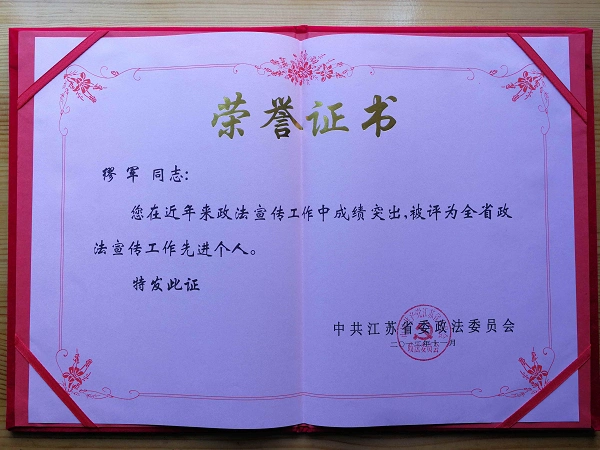 荣誉证书
缪军 同志:
您在近年来政法宣传工作中成绩突出,被评为全省政
法宣传工作先进个人。
特发此证
中共江苏省委政法委员会